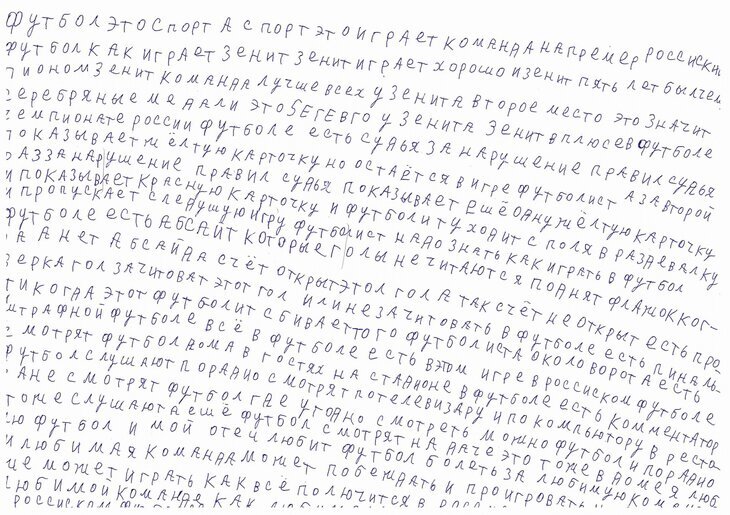 ФУТБОЛ ЭТО СПОРТ А СПОРТ ЭТО ИГРАЕТ КОМАНДА НАПРЕМЕР РОССИСКИ
ФУТБОЛ КАК ИГРАЕТ ЗЕНИТ ЗЕНИТ ИГРАЕТ ХОРОШО И ЗЕНИТ ПЯТЬ ЛЕТ БЫЛ ЧЕМ
ПИОНОМ ЗЕНИТ КОМАНДА ЛУЧШЕ ВСЕХ У ЗЕНИТА ВТОРОЕ МЕСТО ЭТО ЗНАЧИТ
СЕРЕБРЯНЫЕ МЕДАЛИ ЭТО У ЗЕНИТА ЗЕНИТ В ПЛЮСЕ В ФУТБОЛЕ
ЧЕМПИОНАТЕ РОССИИ ФУТБОЛЕ ЕСТЬ СУДЬЯ ЗА НАРУШЕНИЕ ПРАВИЛ СУДЬЯ
ПОКАЗЫВАЕТ ЖЁЛТУЮ КАРТОЧКУ НО ОСТАЁТСЯ В ИГРЕ ФУТБОЛИСТ А ЗА ВТОРОЙ
РАЗ ЗА НАРУШЕНИЕ ПРАВИЛ СУДЬЯ ПОКАЗЫВАЕТ ЕШЁ ОДНУ ЖЁЛТУЮ КАРТОЧКУ
И ПОКАЗЫВАЕТ КРАСНУЮ КАРТОЧКУ И ФУТБОЛИТ УХОДИТ С ПОЛЯ В РАЗДЕВАЛКУ
И ПРОПУСКАЕТ СЛЕДУЩУЮ ИГРУ ФУТБОЛИСТ НАДО ЗНАТЬ КАК ИГРАТЬ В ФУТБОЛ
ФУТБОЛЕ ЕСТЬ АБСАЙТ КОТОРЫЕ ГОЛЫ НЕ ЧИТАЮТСЯ ПОДНЯТ ФЛАЖОК КОГ-
ДА НЕТ АБСАЙДА СЧЁТ ОТКРЫТ ЭТО ГОЛ А ТАК СЧЁТ НЕ ОТКРЫТ ЕСТЬ ПРО
ЗЕРКА ГОЛ ЗАЧИТОВАТ ЭТОТ ГОЛ ИЛИ НЕ ЗАЧИТОВАТЬ В ФУТБОЛЕ ЕСТЬ ПИНАЛЬ-
ТИ КОГДА ЭТОТ ФУТБОЛИТ СБИВАЕТ ТОГО ФУТБОЛИСТА ОКОЛО ВОРОТА ЕСТЬ
ШТРАФНОЙ ФУТБОЛЕ ВСЁ В ФУТБОЛЕ ЕСТЬ В ЭТОМ ИГРЕ В РОССИСКОМ ФУТБОЛЕ
СМОТРЯТ ФУТБОЛ ДОМА В ГОСТЯХ НА СТАДИОНЕ В ФУТБОЛЕ ЕСТЬ КОММЕНТАТОР
ФУТБОЛ СЛУШАЮТ ПО РАДИО СМОТРЯТ ПО ТЕЛЕВИЗАРУ И ПО КОМПЬЮТОРУ В РЕСТО
РАНЕ СМОТРЯТ ФУТБОЛ ГДЕ УГОДНО СМОТРЕТЬ МОЖНО ФУТБОЛ И ПО РАДИО
ТОЖЕ СЛУШАЮТ А ЕШЁ ФУТБОЛ СМОТРЯТ НА ДАЧЕ ЭТО ТОЖЕ В ДОМЕ Я ЛЮБ
ЛЮ ФУТБОЛ И МОЙ ОТЕЧ ЛЮБИТ ФУТБОЛ БОЛЕТЬ ЗА ЛЮБИМУЮ КОМАНДУ
И ЛЮБИМАЯ КОМАНДА МОЖЕТ ПОБЕЖДАТЬ И ПРОИГРОВАТЬ И
ЩЕ МОЖЕТ ИГРАТЬ КАК ВСЁ ПОЛЮЧИТСЯ В
ЛЮБИМОЙ КОМАНДЯ КАК
РОССИСКОМ